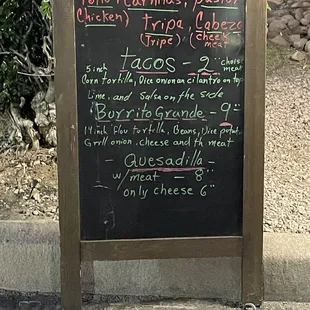 Chicken) tripa, Cabeza
(Tripe) (cheek meat)
5 inch tacos - 2"
Corn tortilla, Dice onion an cilantro on top
Lime, and Salsa on the side
Burrito Grande - 9"
14 inch flou tortilla, Beans, Dice potat,
Grill onion, cheese and th meat
- Quesadilla -
w/ meat - 8"
only cheese 6"